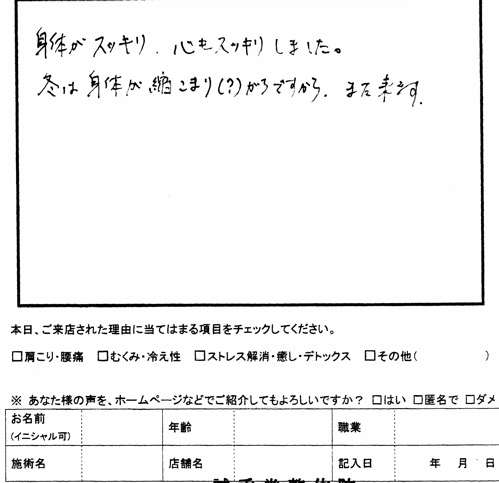 身体がスッキリ、心もスッキリしました。
冬は身体が縮こまり(?)がちですから、また来ます。
本日、ご来店された理由に当てはまる項目をチェックしてください。
□肩こり・腰痛 □むくみ・冷え性 □ストレス解消・癒し・デトックス □その他( )
※ あなた様の声を、ホームページなどでご紹介してもよろしいですか? □はい □匿名で □ダメ
お名前 年齢 職業
(イニシャル可)
施術名 店舗名 記入日 年 月 日